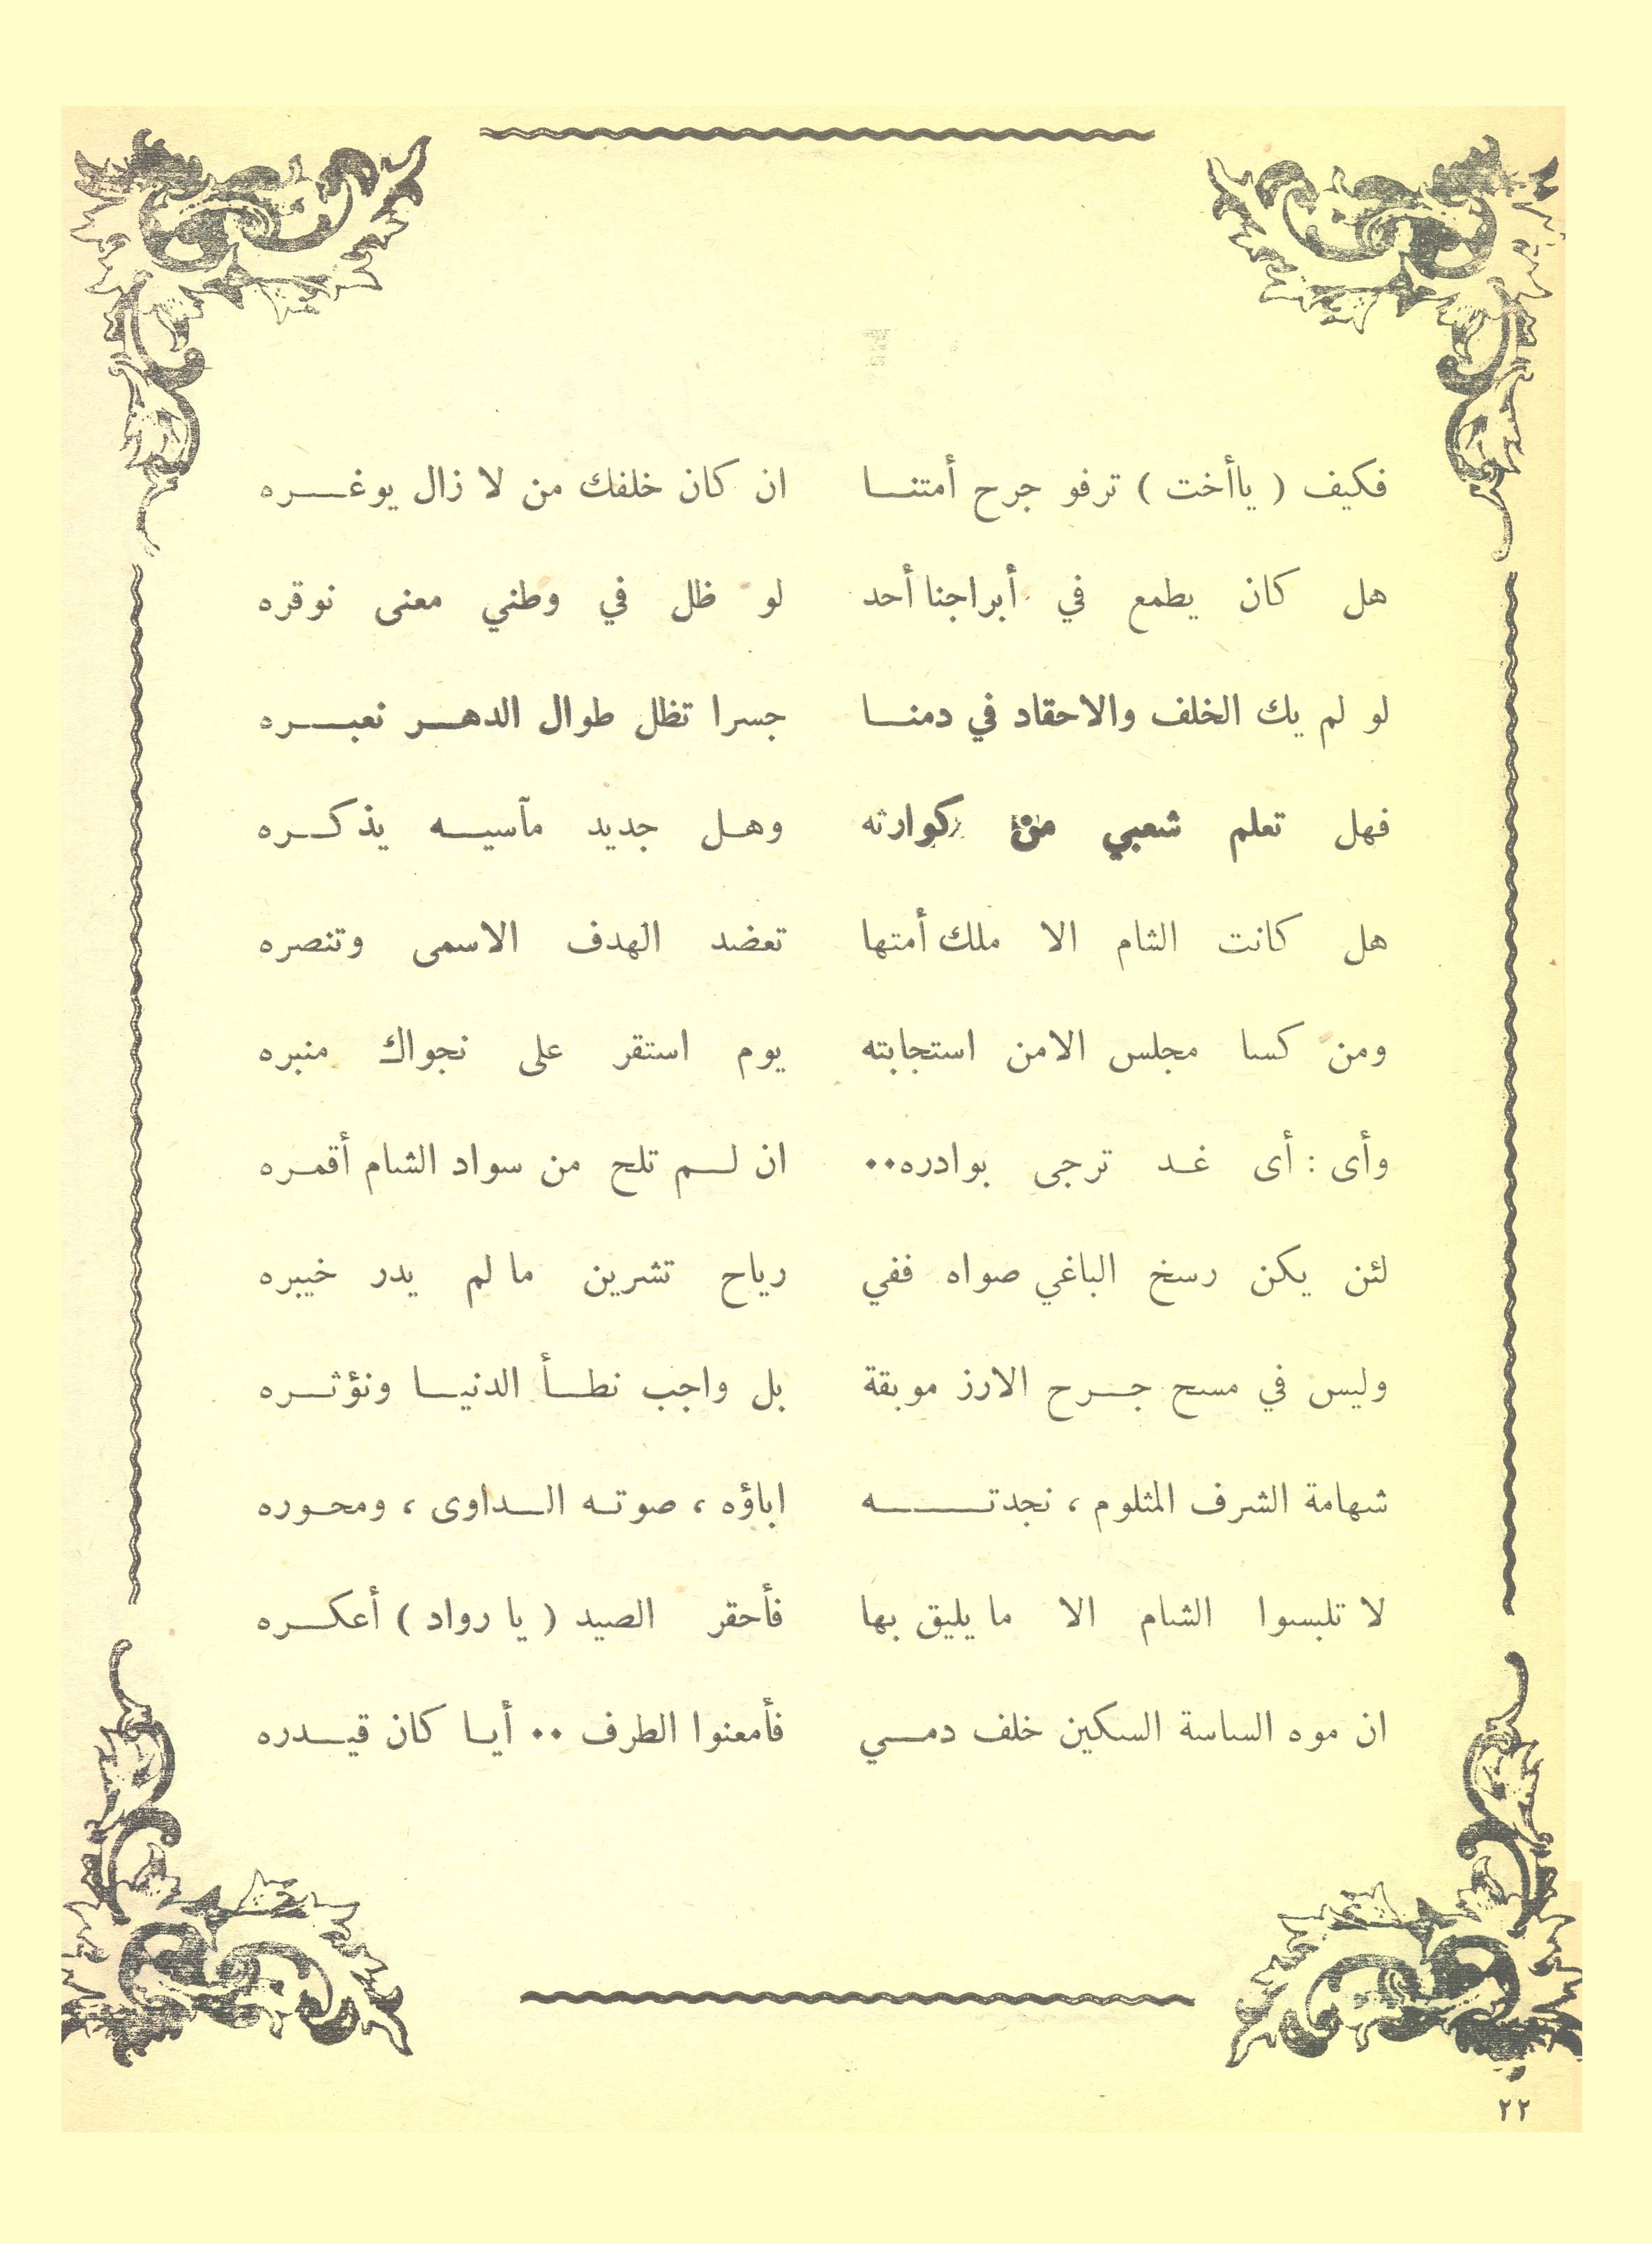 فكيف ( ياأخت ) ترفو جرح أمتنا ان كان خلفك من لا زال يوغره
هل كان يطمع في أبراجنا أحد لو ظل في وطني معنى نوقره
لو لم يك الخلف والاحقاد في دمنا جسرا تظل طوال الدهر نعبره
فهل تعلم شعبي من كوارثه وهل جديد مآسيه يذكره
هل كانت الشام الا ملك أمتها تعضد الهدف الاسمى وتنصره
ومن كسا مجلس الامن استجابته يوم استقر على نجواك منبره
وأى : أى غد ترجى بوادره٠٠ ان لم تلح من سواد الشام أقمره
لئن يكن رسخ الباغي صواه ففي رياح تشرين ما لم يدر خيبره
وليس في مسح جرح الارز موبقة بل واجب نطأ الدنيا ونؤثره
شهامة الشرف المثلوم ، نجدته اباؤه ، صوته الداوى ، ومحوره
لا تلبسوا الشام الا ما يليق بها فأحقر الصيد ( يا رواد ) أعكره
ان موه الساسة السكين خلف دمي فأمعنوا الطرف ٠٠ أيا كان قيدره
٢٢